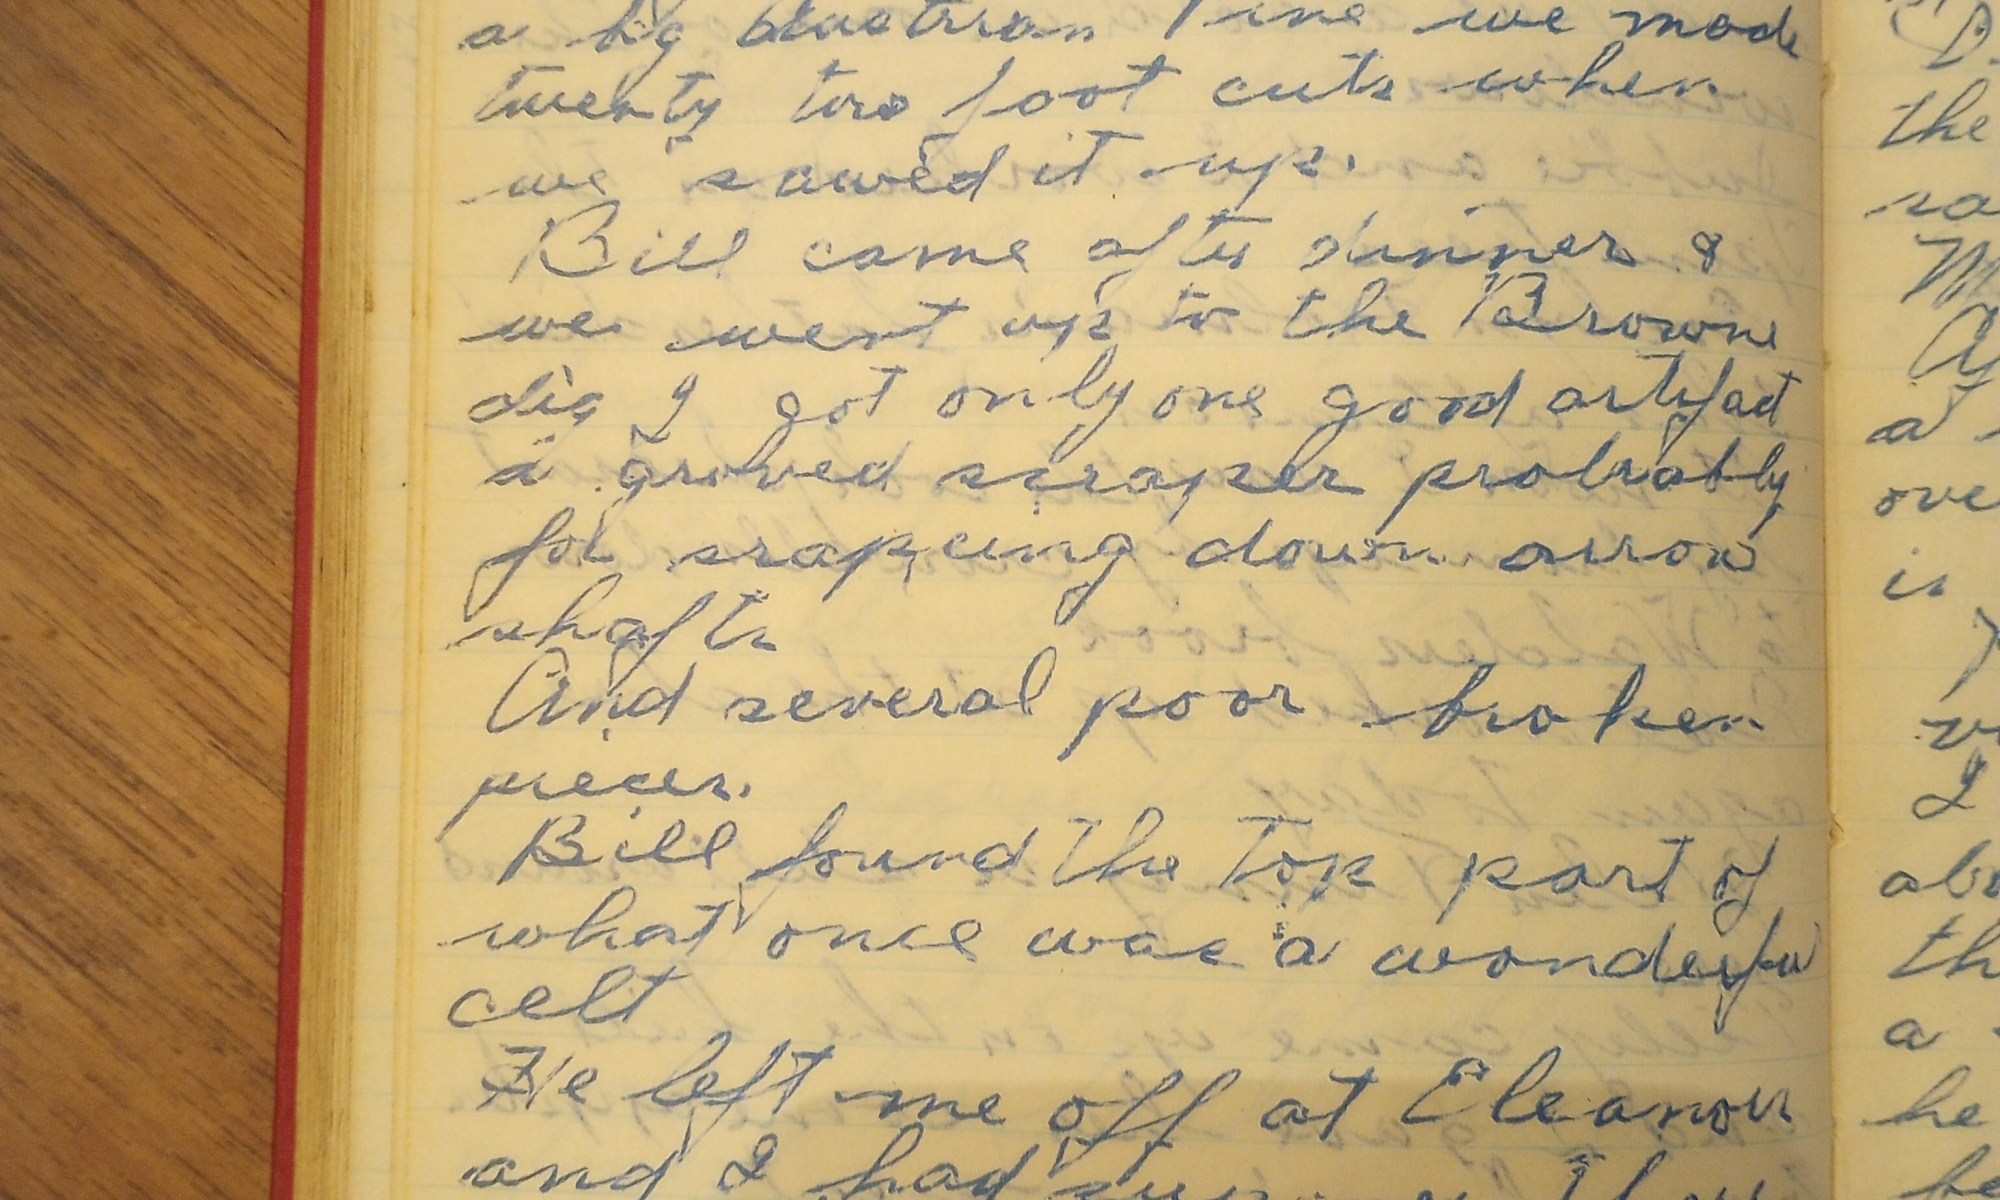 a big Austrian Pine we made
twenty two foot cuts when
we sawed it up.
Bill came after dinner &
we went up to the Browne
dig I got only one good artifact
a groved scraper probrably
for srapeing down arrow
shafts
And several poor broken
pieces.
Bill found the top part of
what once was a wonderful
celt
He left me off at Eleanors
and I had supper
D.
the
ra
M
a
ove
is
I
abo
th
a
he
he